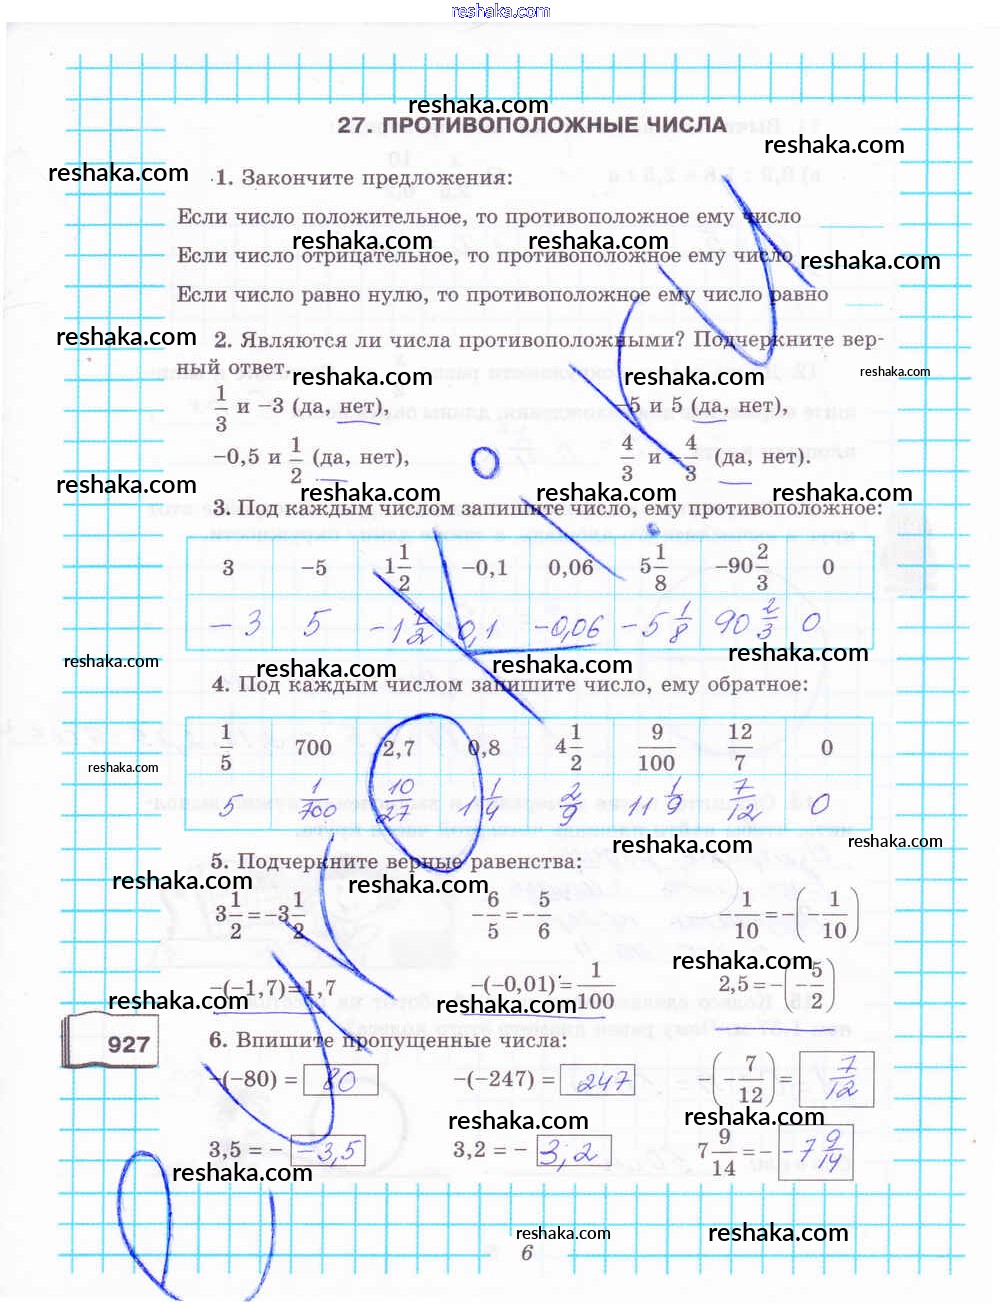 reshaka.com
reshaka.com
27. ПРОТИВОПОЛОЖНЫЕ ЧИСЛА
reshaka.com
reshaka.com
1. Закончите предложения:
Если число положительное, то противоположное ему число
reshaka.com reshaka.com
Если число отрицательное, то противоположное ему число
reshaka.com
Если число равно нулю, то противоположное ему число равно
reshaka.com
2. Являются ли числа противоположными? Подчеркните вер-
ный ответ.
reshaka.com reshaka.com reshaka.com
1/3 и −3 (да, нет), −5 и 5 (да, нет),
−0,5 и 1/2 (да, нет), 4/3 и −4/3 (да, нет).
reshaka.com reshaka.com reshaka.com reshaka.com
3. Под каждым числом запишите число, ему противоположное:
3 −5 1 1/2 −0,1 0,06 5 1/8 −90 2/3 0
−3 5 −1 1/2 0,1 −0,06 −5 1/8 90 2/3 0
reshaka.com reshaka.com reshaka.com reshaka.com
4. Под каждым числом запишите число, ему обратное:
1/5 700 2,7 0,8 4 1/2 9/100 12/7 0
reshaka.com
5 1/700 10/27 1 1/4 2/9 11 1/9 7/12 0
reshaka.com reshaka.com
5. Подчеркните верные равенства:
reshaka.com reshaka.com
3 1/2 = −3 1/2 −6/5 = −5/6 1/10 = −(−1/10)
reshaka.com
−(−1,7) = 1,7 −(−0,01) = 1/100 2,5 = −(−5/2)
reshaka.com
927
6. Впишите пропущенные числа:
−(−80) = 80 −(−247) = 247 −(−7/12) = 7/12
reshaka.com reshaka.com
3,5 = − −3,5 3,2 = − 3,2 7 9/14 = − −7 9/14
reshaka.com
reshaka.com reshaka.com
6